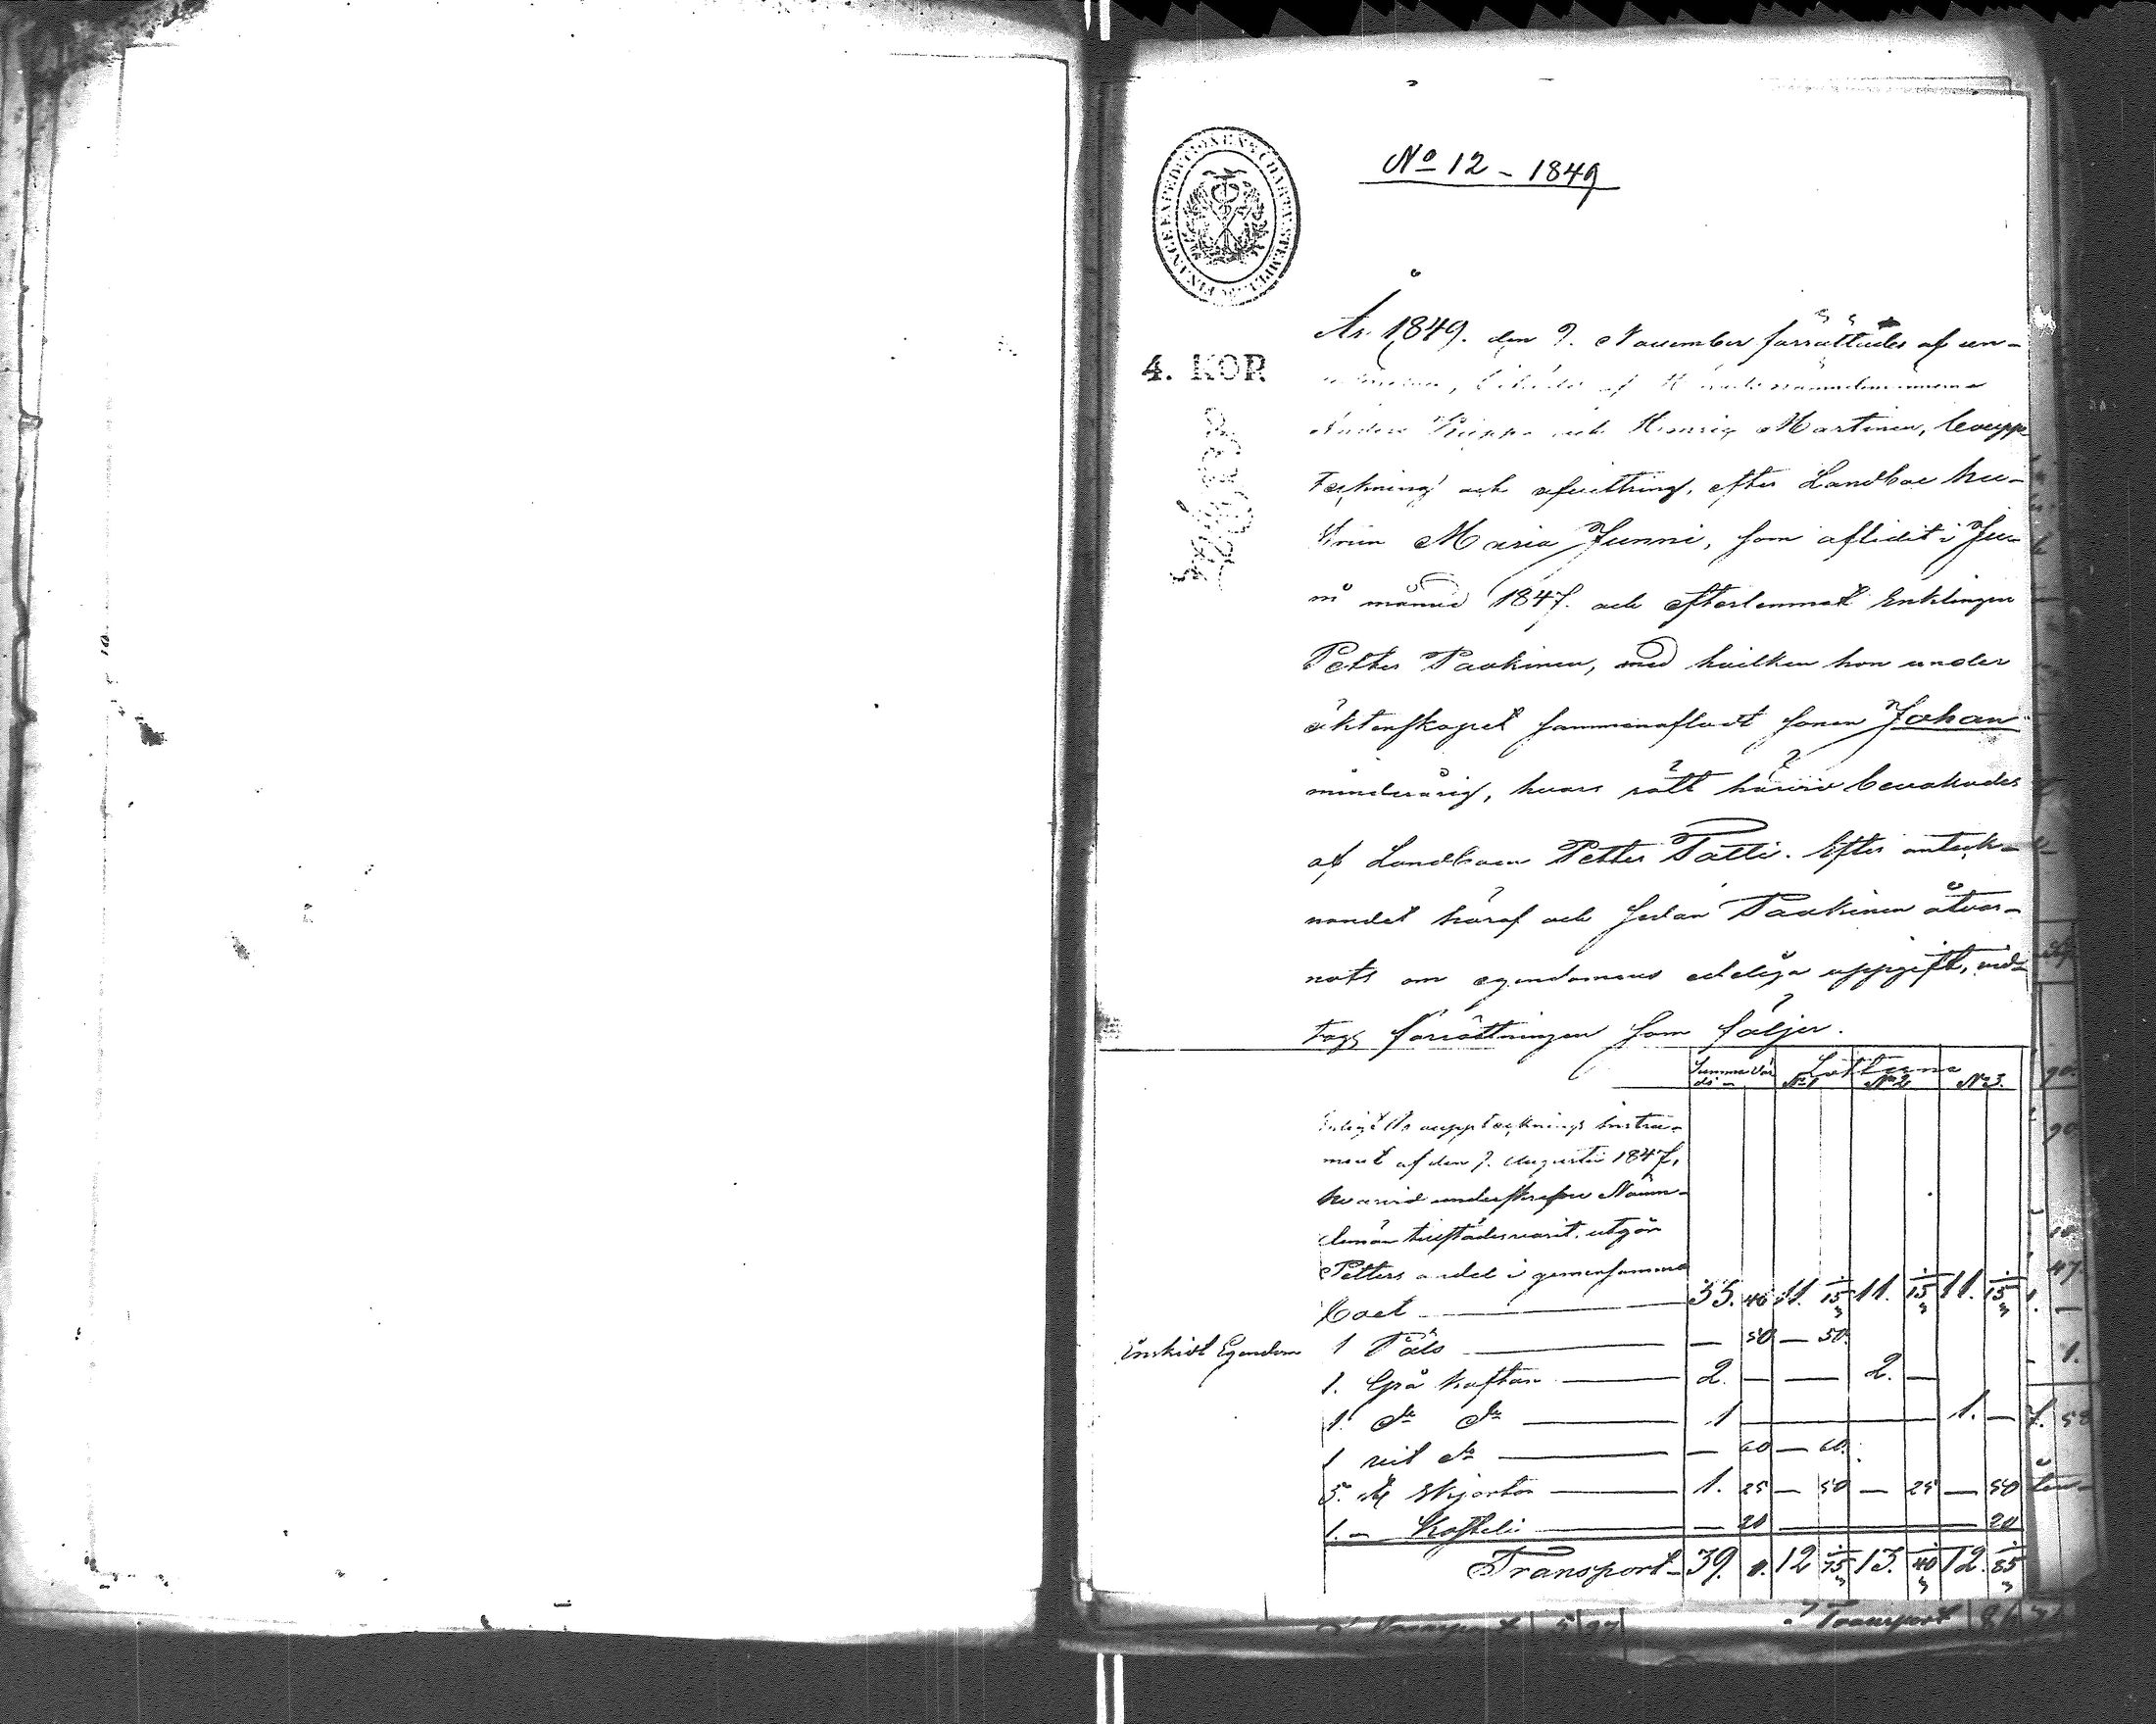 No 12 - 1849
FINANCE EXPEDITIONENS CHARTÆ STEMPEL
4. KOP.
År 1849. den 9. November förrättades af un-
Anders och Henric Martinen, bouppe
teckning och afvittring, efter Landboe hu-
strun Maria Junni, som aflidit i Ju-
ni månad 1847. och efterlemnat Enklingen
Petter Paakinen, med hvilken hon under
äktenskapet sammanafladt sonen Johan
minderårig, hvars rätt härvid bevakades
af Landboen Petter Patti. Efter anteck-
nandet häraf och sedan Paakinen åtvar-
nats om egendomens edeliga uppgift, vid-
togs förrättningen som följer.
Summa Vär Lotterne
de No 1 No 2 No 3.
Enligt Boupptecknings Instru-
ment af den 7. Augusti 1847,
hvarvid underskrefne Näm-
demän tillstädesvarit, utgör
Petters andel i gemensamma
boet 33. 46 11. 15 11. 15 11. 15
Enskildt Egendom 1 Päls — 50 — 50.
1. Grå kaftan 2. — — 2. —
1. do do 1 1. —
1 vit do — 60 — 60.
5. st Skjortor 1. 25 — 50 — 25 — 50
1. — Kosteli — 20 20
Transport 39. 1. 12 75 13. 40 12. 85
Transport